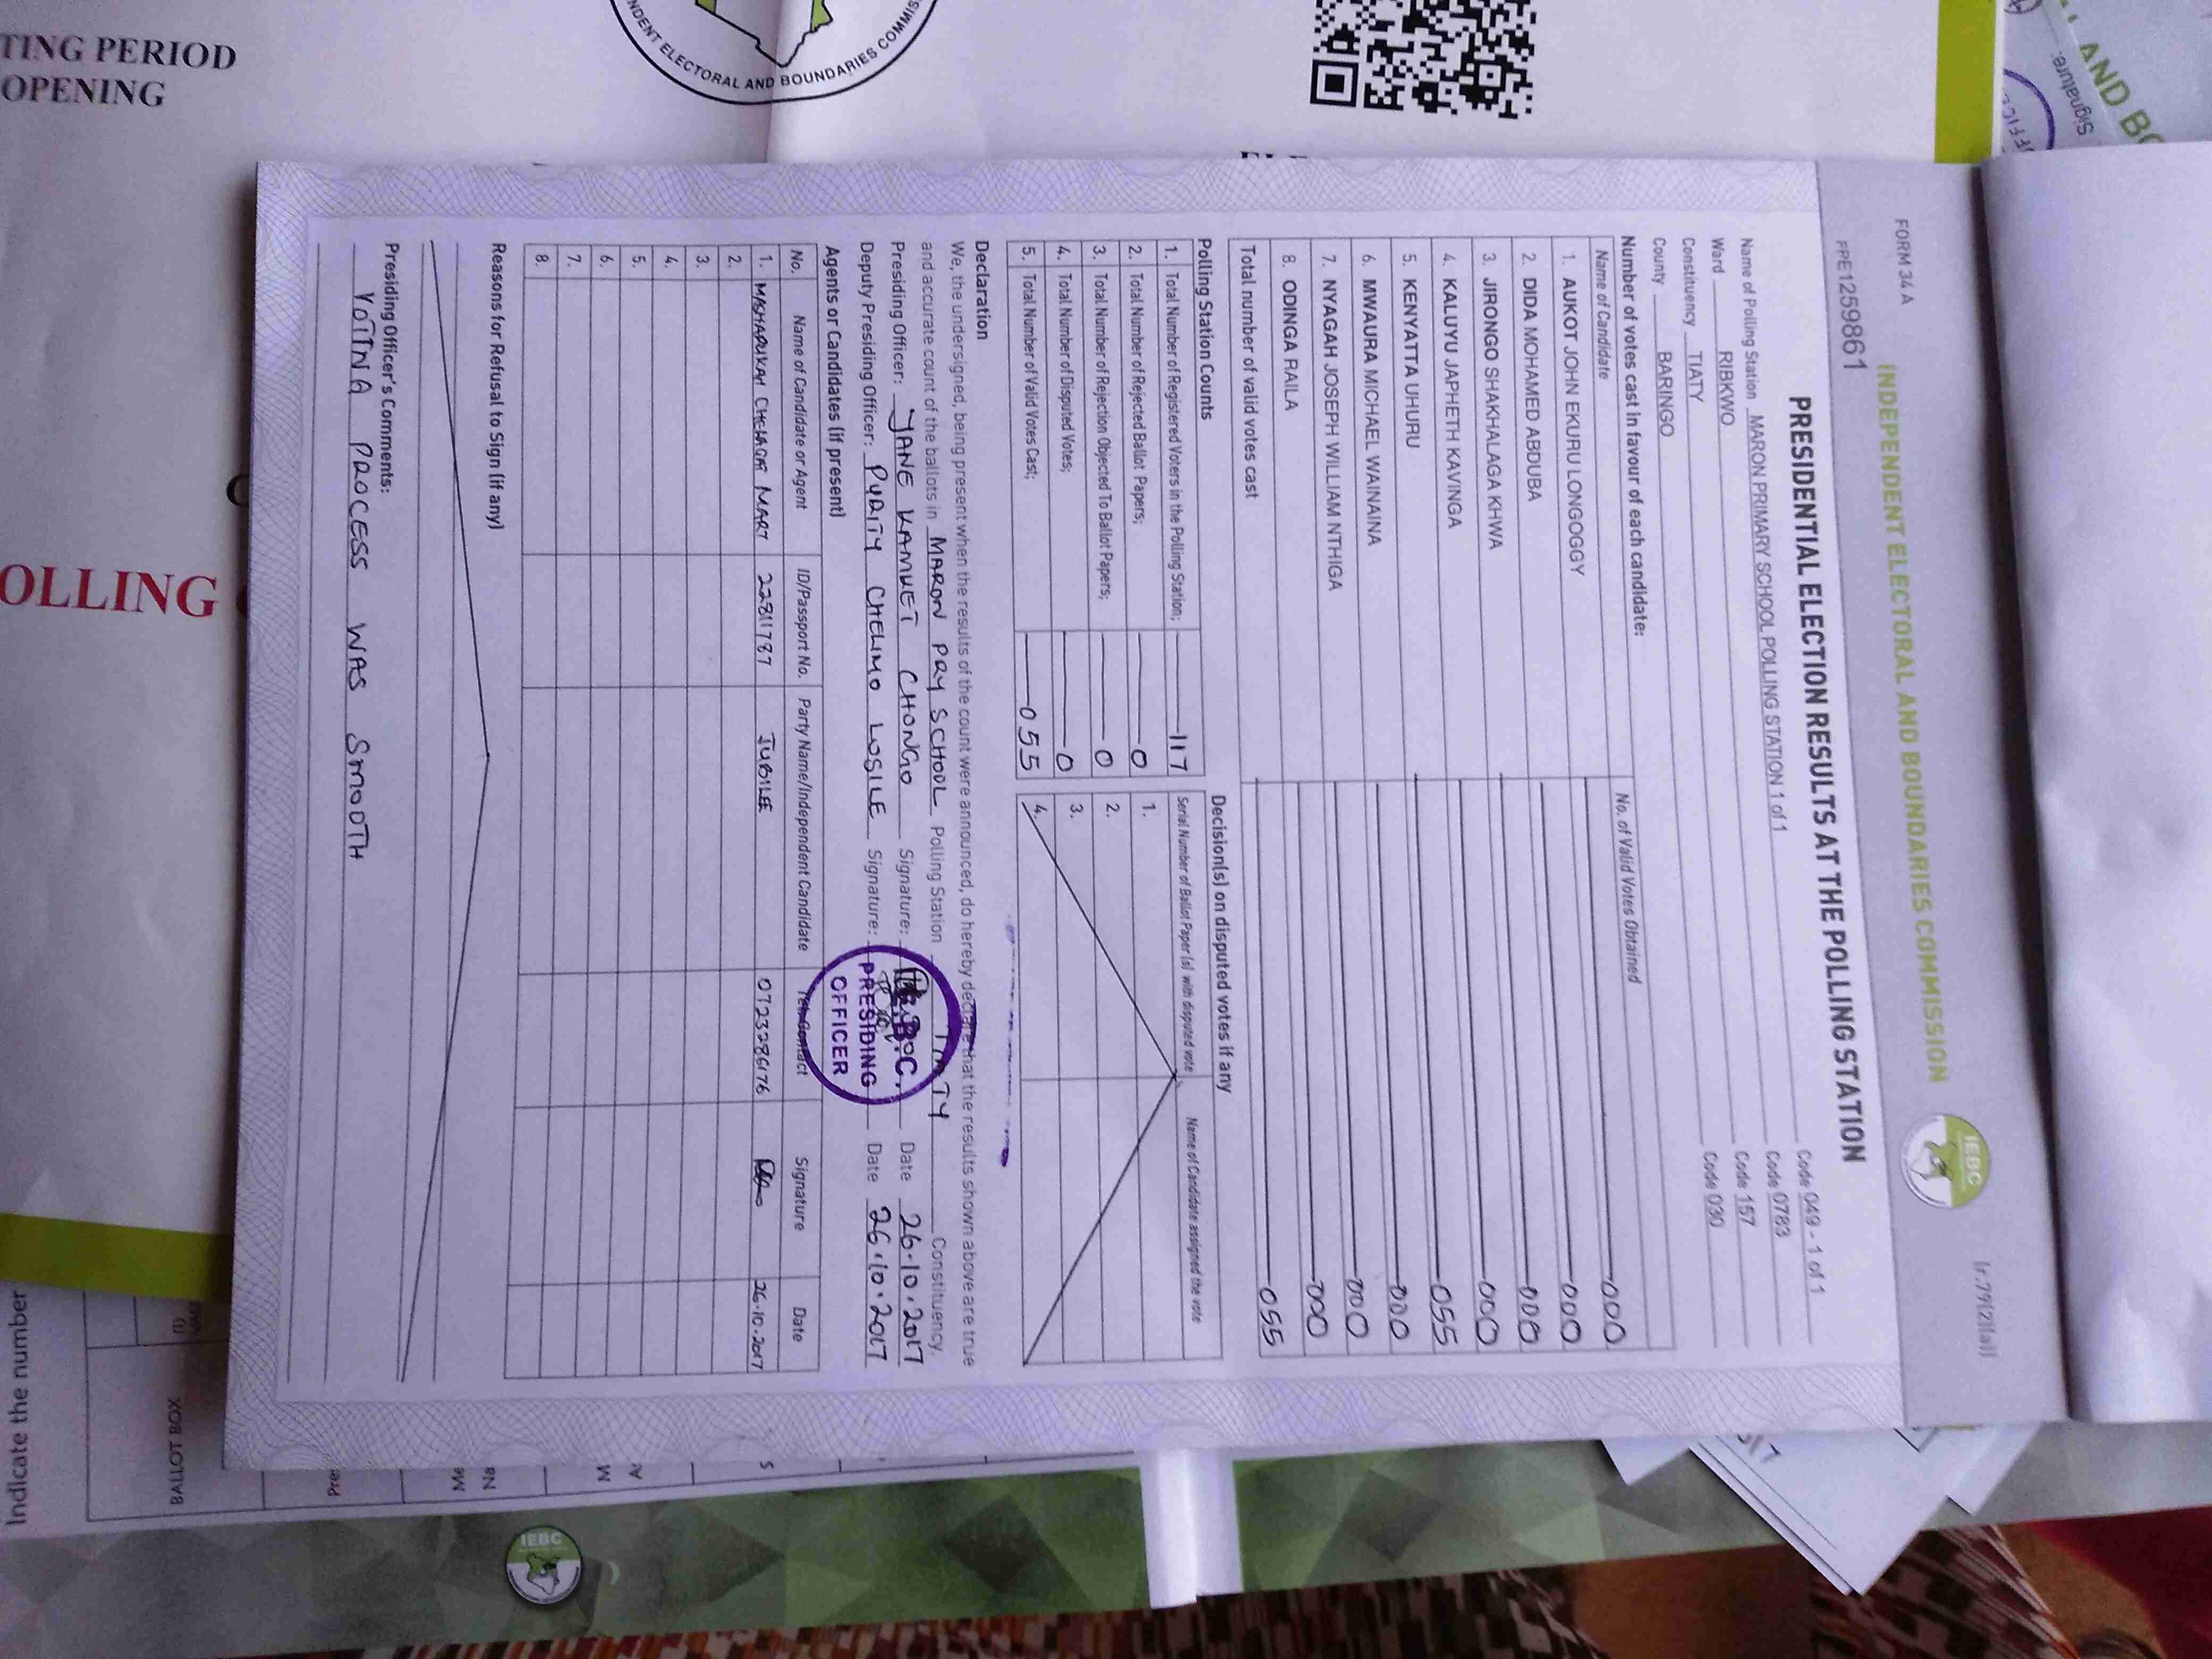 FORM 34A
Ir.79(2)(a)
INDEPENDENT ELECTORAL AND BOUNDARIES COMMISSION
IEBC
FPE1259861
PRESIDENTIAL ELECTION RESULTS AT THE POLLING STATION
Name of Polling Station MARON PRIMARY SCHOOL POLLING STATION 1 of 1 Code 049 - 1 of 1
Ward RIBKWO Code 0783
Constituency TIATY Code 157
County BARINGO Code 030
Number of votes cast in favour of each candidate:
Name of Candidate No. of Valid Votes Obtained
1. AUKOT JOHN EKURU LONGOGGY 000
2. DIDA MOHAMED ABDUBA 000
3. JIRONGO SHAKHALAGA KHWA 000
4. KALUYU JAPHETH KAVINGA 000
5. KENYATTA UHURU 055
6. MWAURA MICHAEL WAINAINA 000
7. NYAGAH JOSEPH WILLIAM NTHIGA 000
8. ODINGA RAILA 000
Total number of valid votes cast 055
Polling Station Counts
1. Total Number of Registered Voters in the Polling Station; 117
2. Total Number of Rejected Ballot Papers; 0
3. Total Number of Rejection Objected To Ballot Papers; 0
4. Total Number of Disputed Votes; 0
5. Total Number of Valid Votes Cast; 055
Decision(s) on disputed votes if any
Serial Number of Ballot Paper (s) with disputed vote Name of Candidate assigned the vote
1.
2.
3.
4.
Declaration
We, the undersigned, being present when the results of the count were announced, do hereby declare that the results shown above are true
and accurate count of the ballots in MARON PRY SCHOOL Polling Station TIATY Constituency.
Presiding Officer: JANE KAMKET CHONGO Signature: Date 26.10.2017
Deputy Presiding Officer: PURITY CHELIMO LOSILE Signature: Date 26.10.2017
PRESIDING
OFFICER
Agents or Candidates (if present)
No. Name of Candidate or Agent ID/Passport No. Party Name/Independent Candidate Tel. Contact Signature Date
1. 22811787 JUBILEE 0723286176 26.10.2017
2.
3.
4.
5.
6.
7.
8.
Reasons for Refusal to Sign (if any)
Presiding Officer's Comments:
VOTING PROCESS WAS SMOOTH
TING PERIOD
OPENING
NDENT ELECTORAL AND BOUNDARIES COMMIS
OLLING
Indicate the number
BALLOT BOX
IEBC
AND BO
Signature: